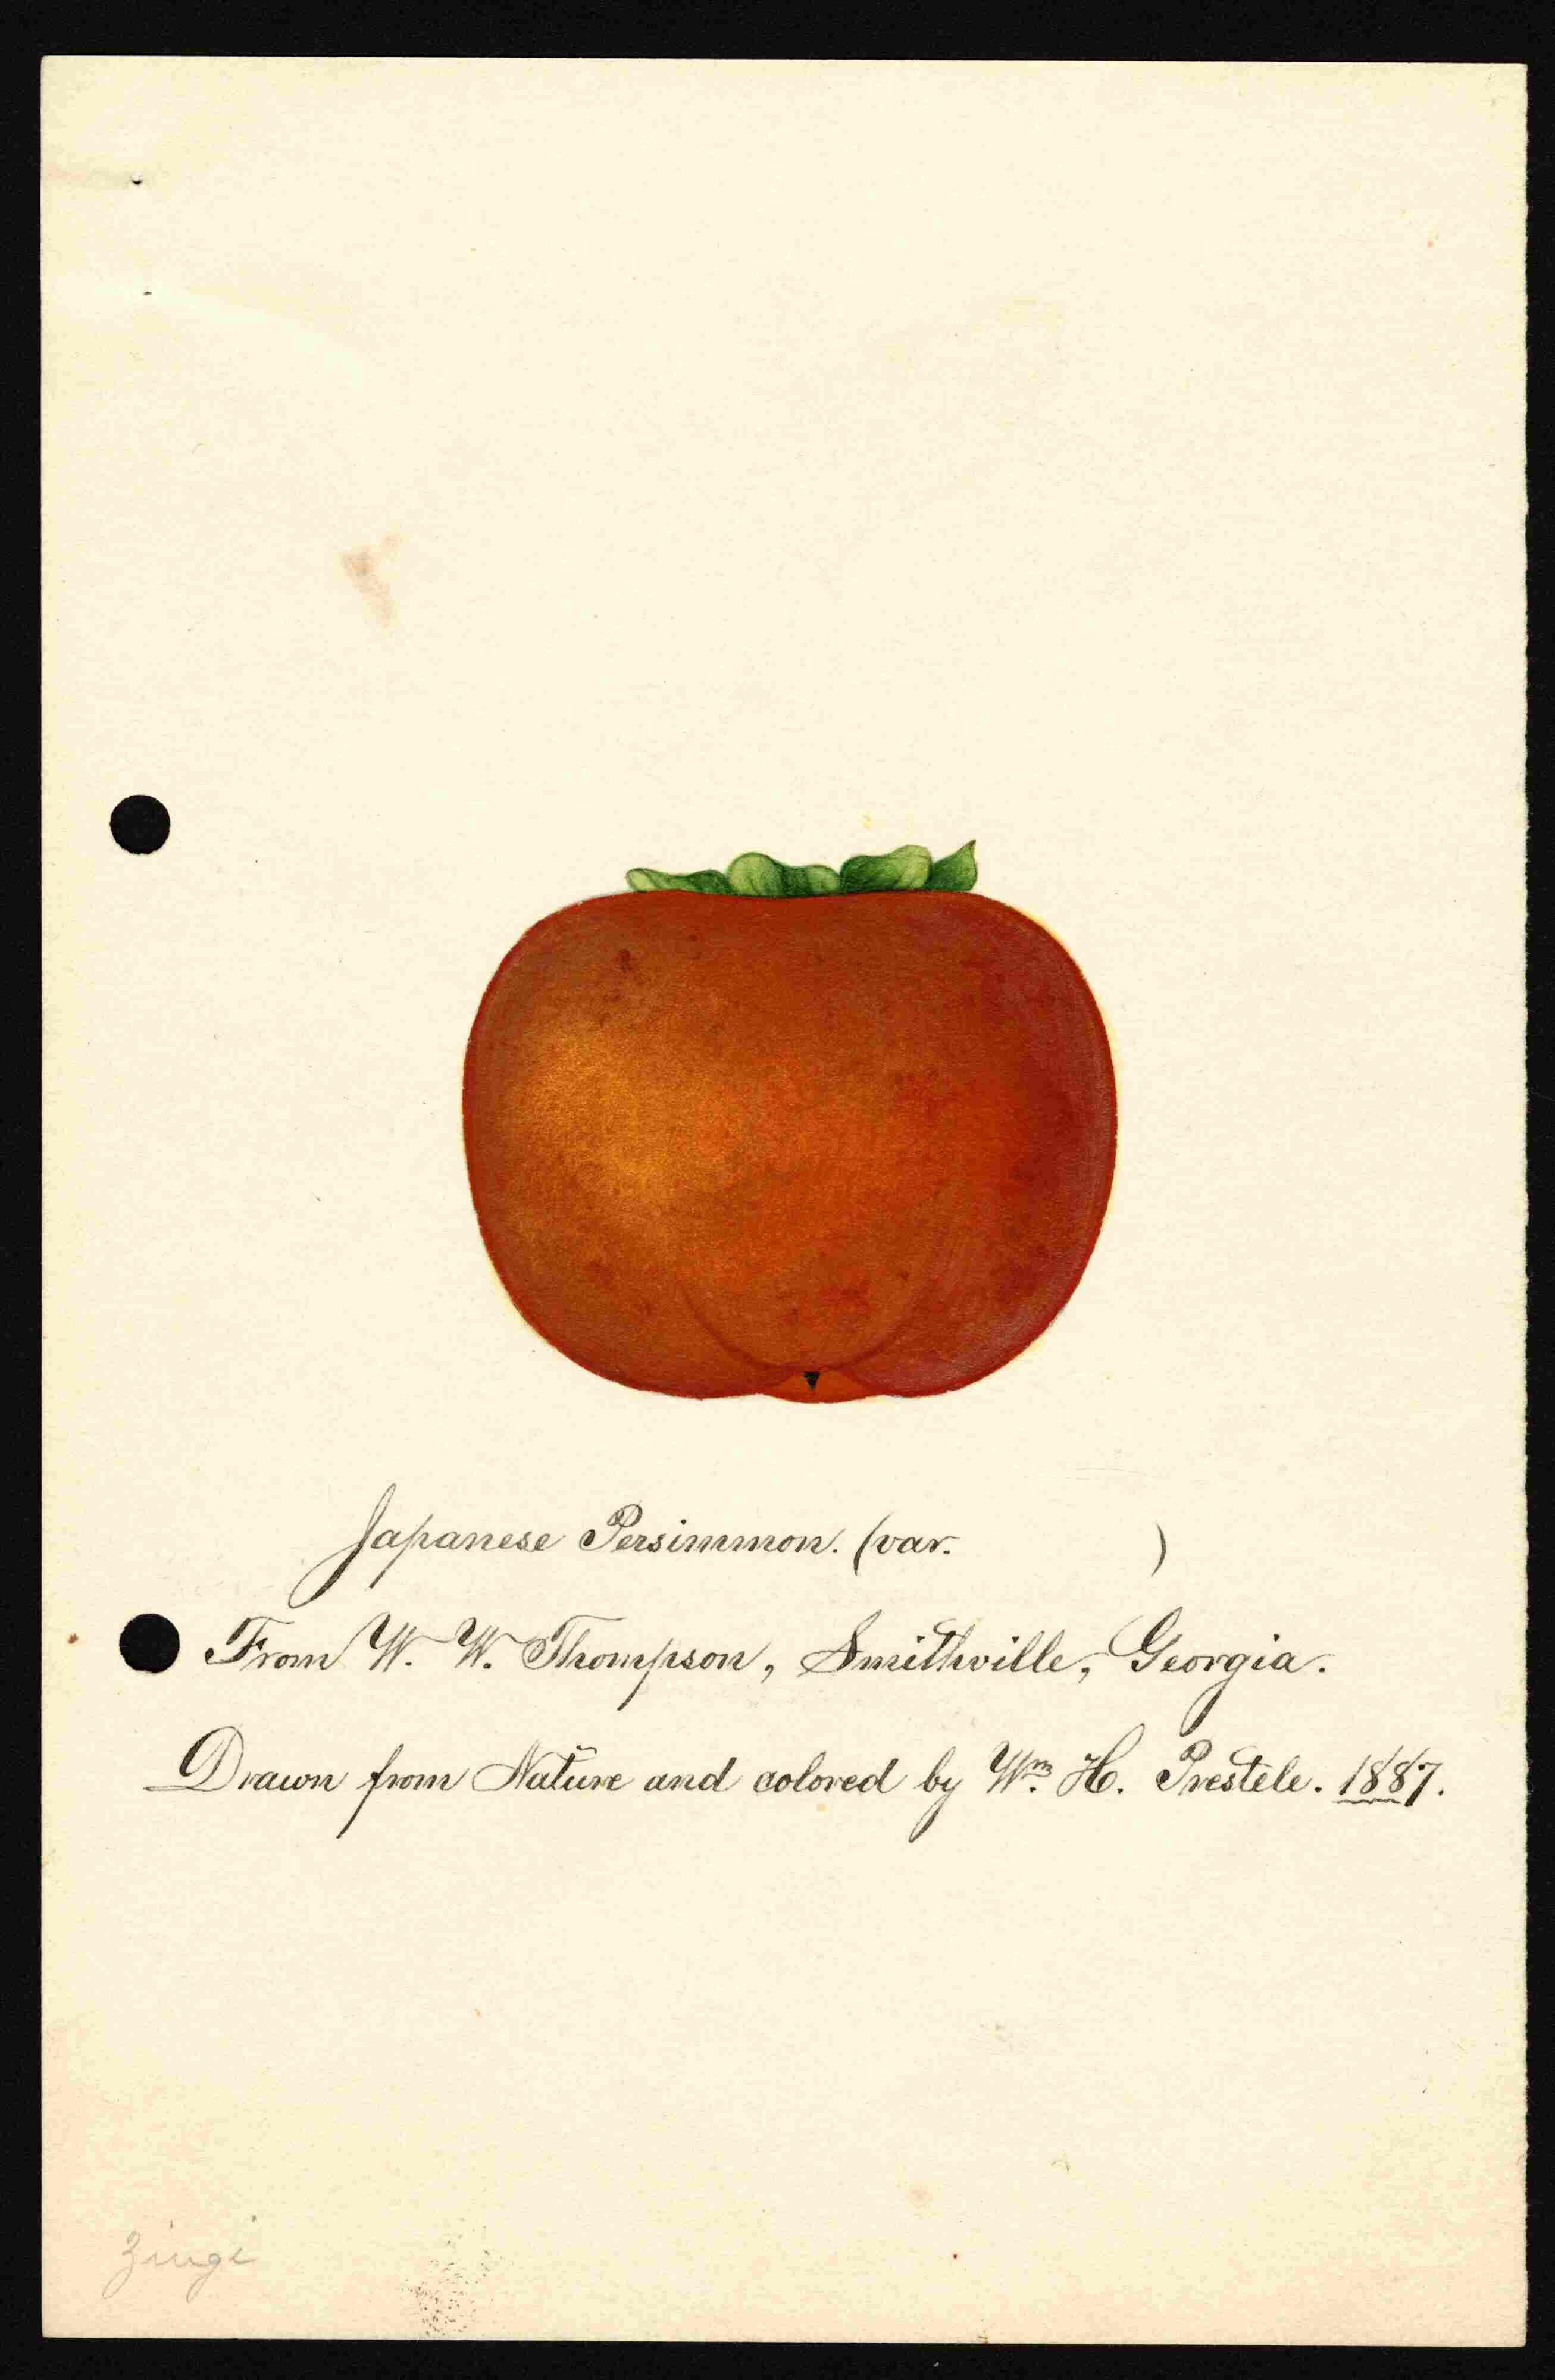 Japanese Persimmon. (var. )
From W. W. Thompson, Smithville, Georgia.
Drawn from Nature and colored by Wm. H. Prestele. 1887.
Zingi